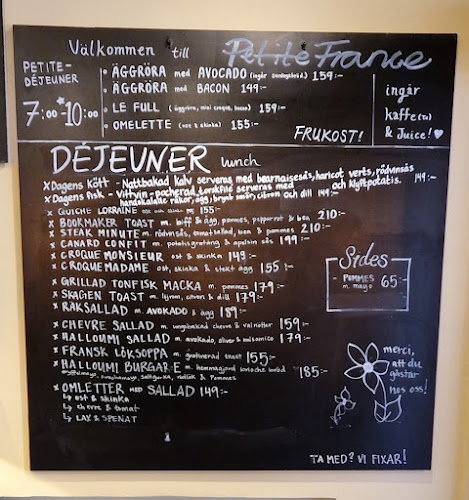 Välkommen till Petite France
PETITE-
DÉJEUNER
7:00*-10:00
• ÄGGRÖRA med AVOCADO (ingår surdegsbröd) 159:-
• ÄGGRÖRA med BACON 149:-
• LE FULL (äggröra, mini croque, bacon) 159:-
• OMELETTE (ost & skinka) 155:-
FRUKOST!
ingår
kaffe(te)
& Juice!
DÉJEUNER lunch
x Dagens kött - Nattbakad kalv serveras med bearnaisesås, haricot verts, rödvinsås och klyftpotatis. 149:-
x Dagens fisk - Vittvin-pocherad torskfilé serveras med
handskalade räkor, ägg, brynt smör, citron och dill 149:-
x QUICHE LORRAINE ost och skinka 155:-
x BOOKMAKER TOAST m. biff & ägg, pommes, pepparrot & bea 210:-
x STEAK MINUTE m. rödvinsås, tomatsallad, bea & pommes 210:-
x CANARD CONFIT m. potatisgratäng & apelsin sås 199:-
x CROQUE MONSIEUR ost & skinka 149:-
x CROQUE MADAME ost, skinka & stekt ägg 155:-
x GRILLAD TONFISK MACKA m. pommes 179:-
x SKAGEN TOAST m. löjrom, citron & dill 179:-
x RÄKSALLAD m. AVOKADO & ägg 189:-
x CHEVRE SALLAD m. ungsbakad chevre & valnötter 159:-
x HALLOUMI SALLAD m. avokado, oliver & balsamico 179:-
x FRANSK LÖKSOPPA m. gratinerad toast 155:-
x HALLOUMI BURGARE m. hemmagjord brioche bröd 185:-
tryffelmayo, srirachamayo, saltgurka, rödlök & Pommes
x OMLETTER med SALLAD 149:-
↳ ost & skinka
↳ chevre & tomat
↳ LAX & SPENAT
Sides
- POMMES 65:-
m. mayo
merci,
att du
gästar
hos oss!
TA MED? VI FIXAR!